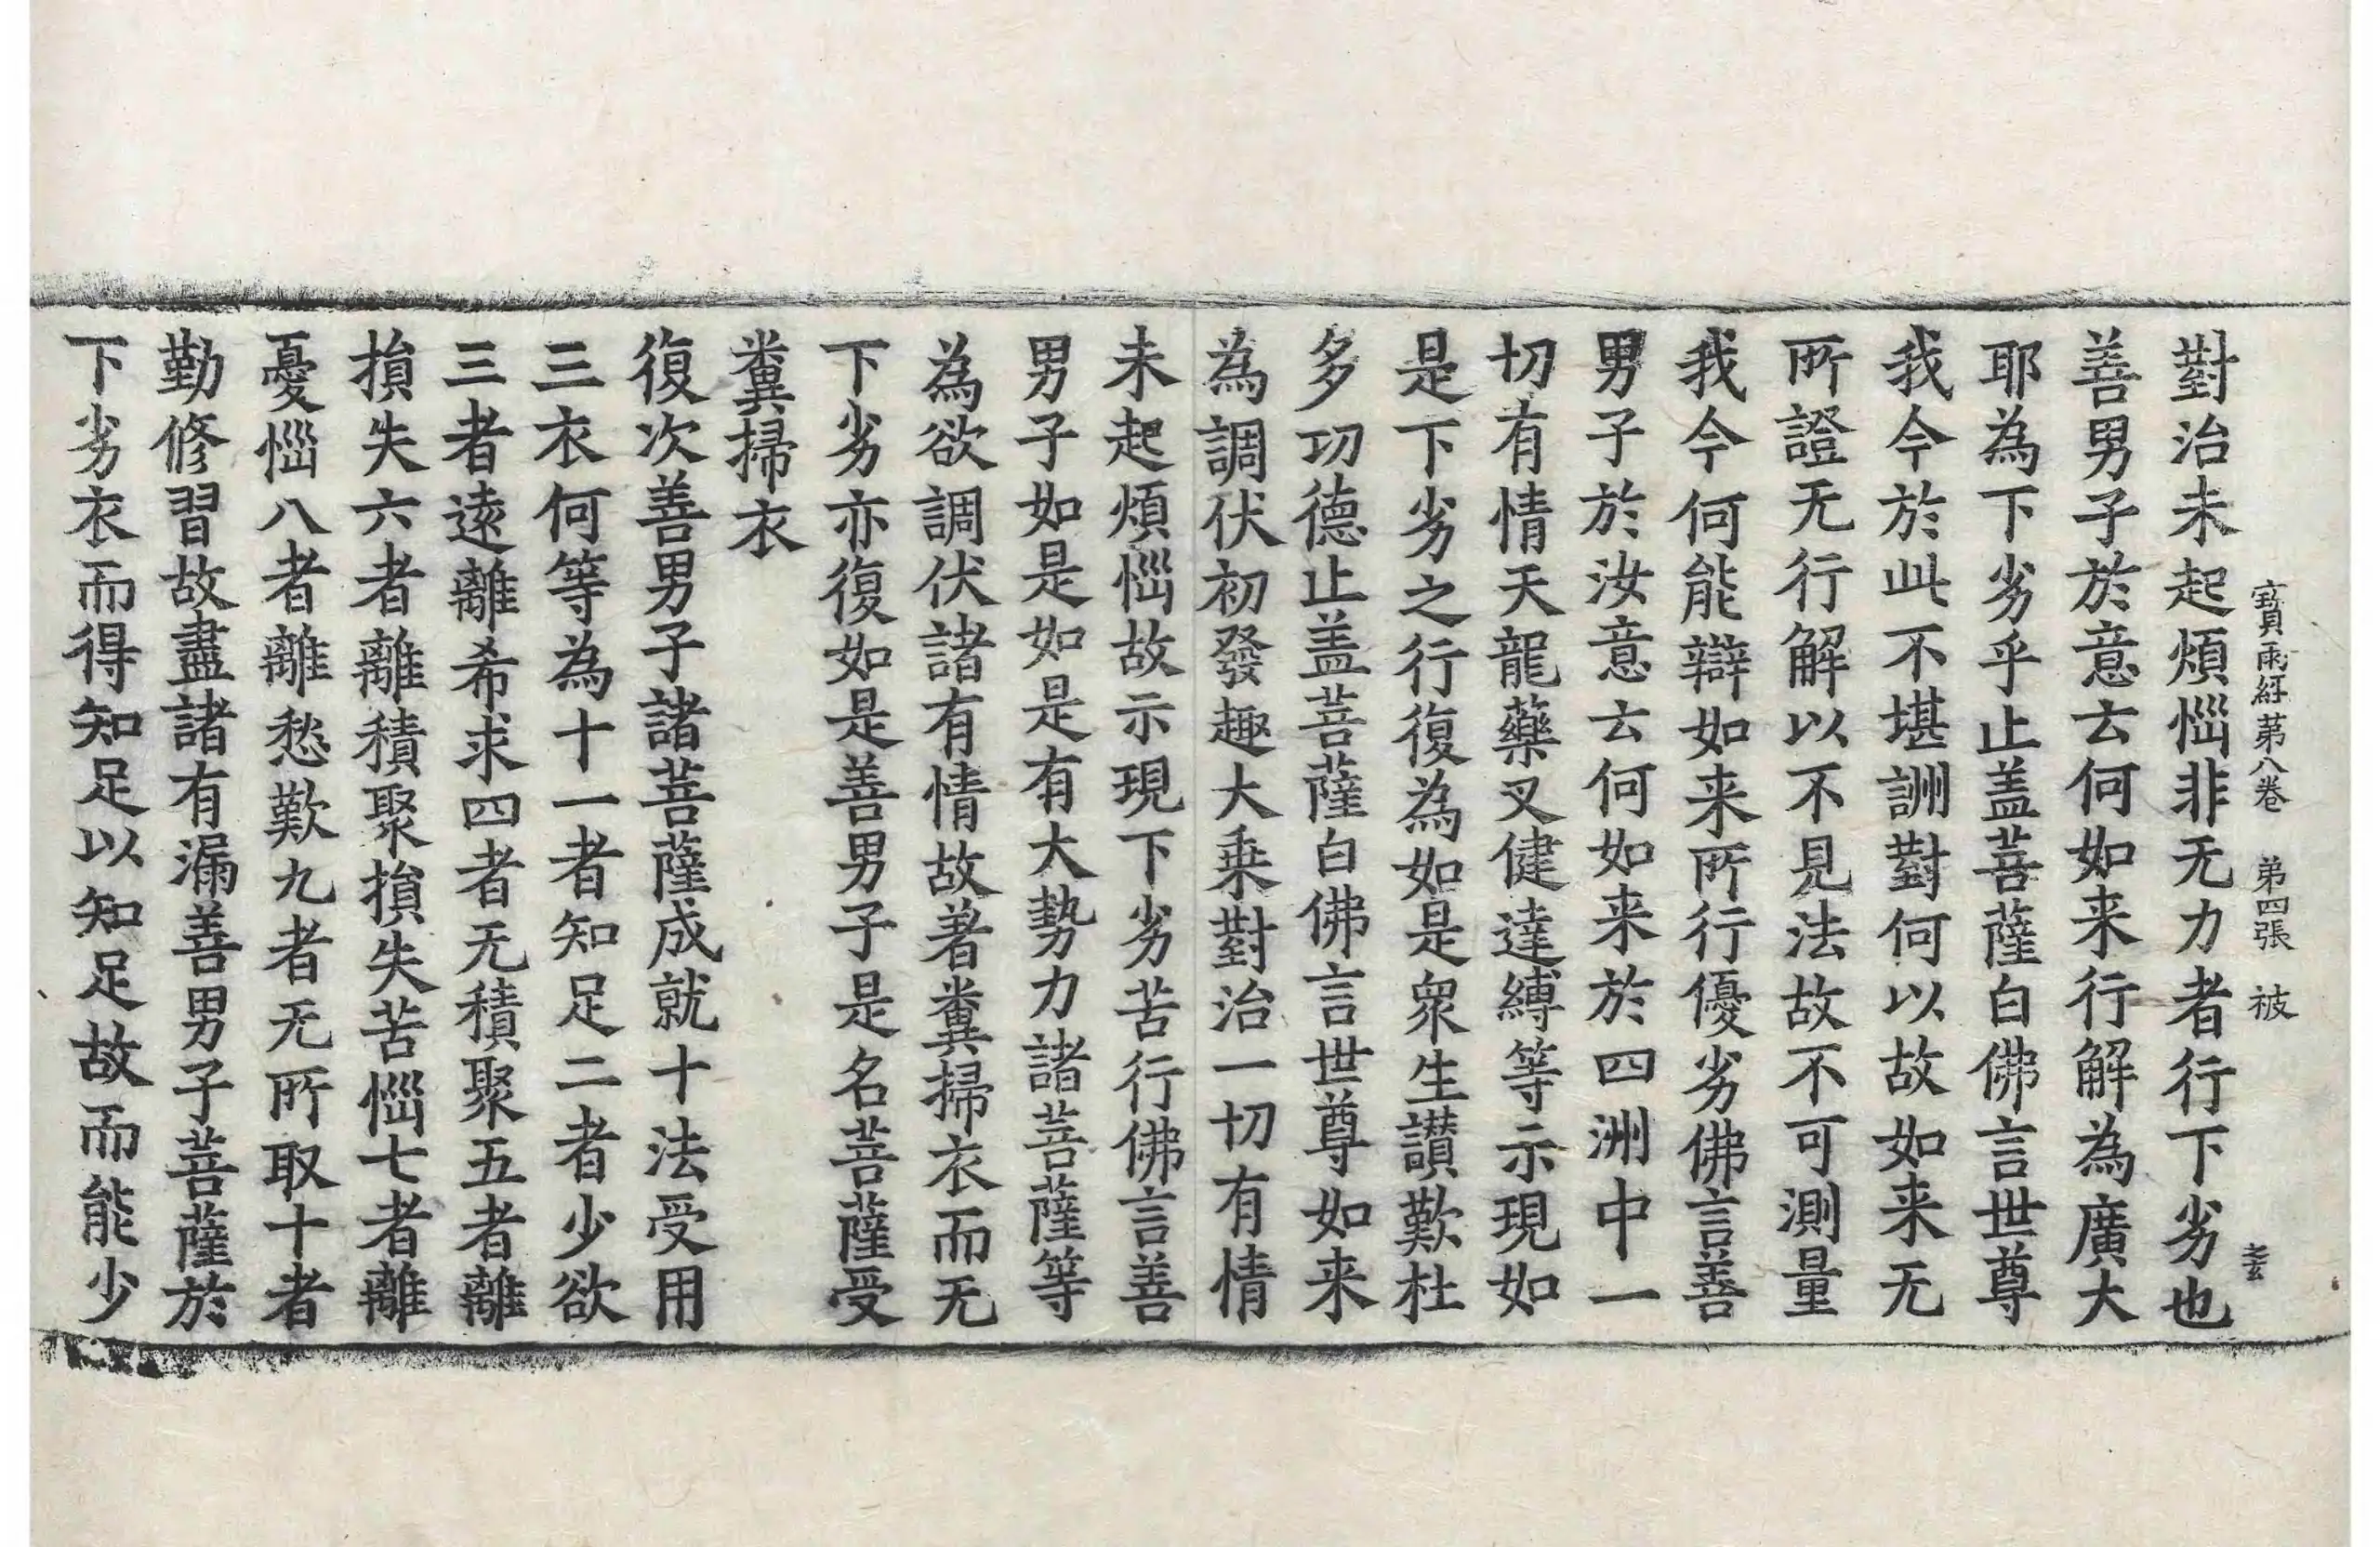 寶雨経苐八卷 苐四張 被
對治未起煩惱非无力者行下劣也
善男子於意云何如来行解為廣大
耶為下劣乎止盖菩薩白佛言世尊
我今於此不堪詶對何以故如来无
所證无行解以不見法故不可測量
我今何能辯如来所行優劣佛言善
男子於汝意云何如来於四洲中一
切有情天龍藥叉健達縛等示現如
是下劣之行復為如是衆生讃歎杜
多功德止盖菩薩白佛言世尊如来
為調伏初發趣大乗對治一切有情
未起煩惱故示現下劣苦行佛言善
男子如是如是有大勢力諸菩薩等
為欲調伏諸有情故著糞掃衣而无
下劣亦復如是善男子是名菩薩受
糞掃衣
復次善男子諸菩薩成就十法受用
三衣何等為十一者知足二者少欲
三者遠離希求四者无積聚五者離
損失六者離積聚損失苦惱七者離
憂惱八者離愁歎九者无所取十者
勤修習故盡諸有漏善男子菩薩於
下劣衣而得知足以知足故而能少